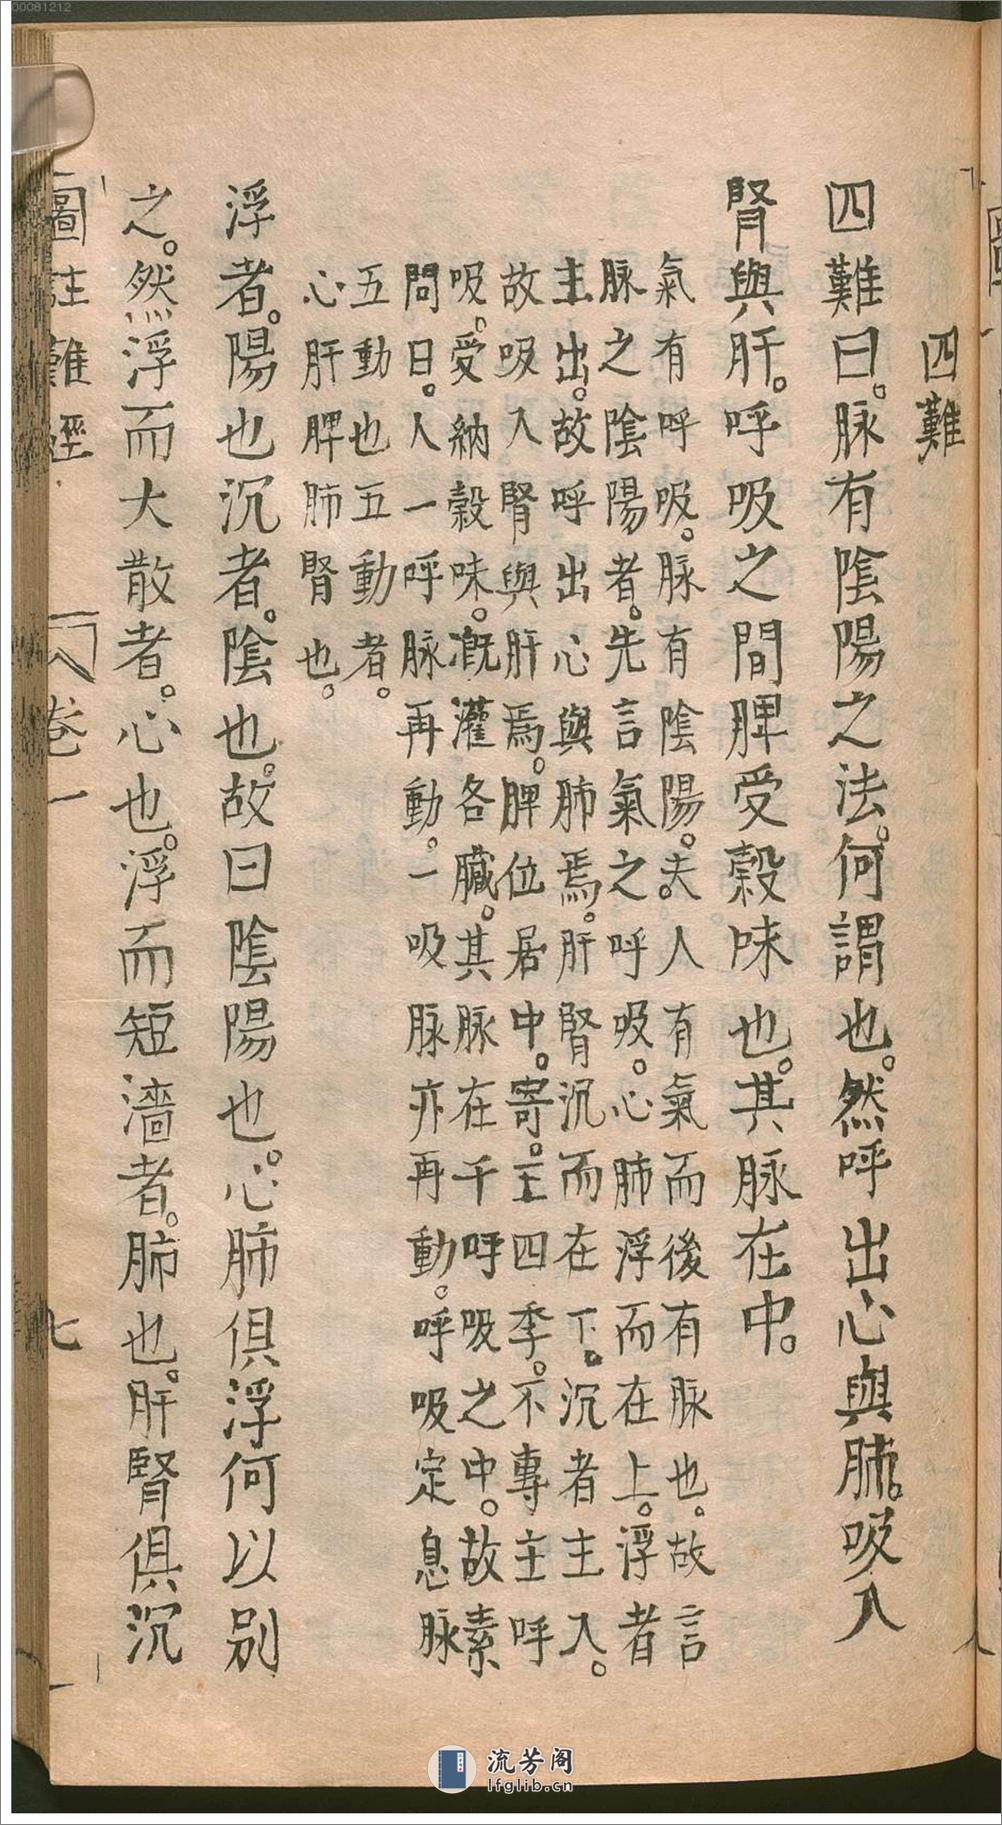 00081212
四難
四難曰。脉有陰陽之法。何謂也。然呼出心與肺。吸入
腎與肝。呼吸之間脾受穀味也。其脉在中。
氣有呼吸。脉有陰陽。夫人有氣而後有脉也。故言
脉之陰陽者。先言氣之呼吸。心肺浮而在上。浮者
主出。故呼出心與肺焉。肝腎沉而在下。沉者主入。
故吸入腎與肝焉。脾位居中。寄主四季。不專主呼
吸。受納穀味。溉灌各臟。其脉在于呼吸之中。故素
問曰。人一呼脉再動。一吸脉亦再動。呼吸定息脉
五動也五動者。
心肝脾肺腎也。
浮者。陽也沉者。陰也。故曰陰陽也。心肺俱浮何以別
之。然浮而大散者。心也。浮而短濇者。肺也。肝腎俱沉
圖註難經
卷一
七
流芳阁
lfglib.cn